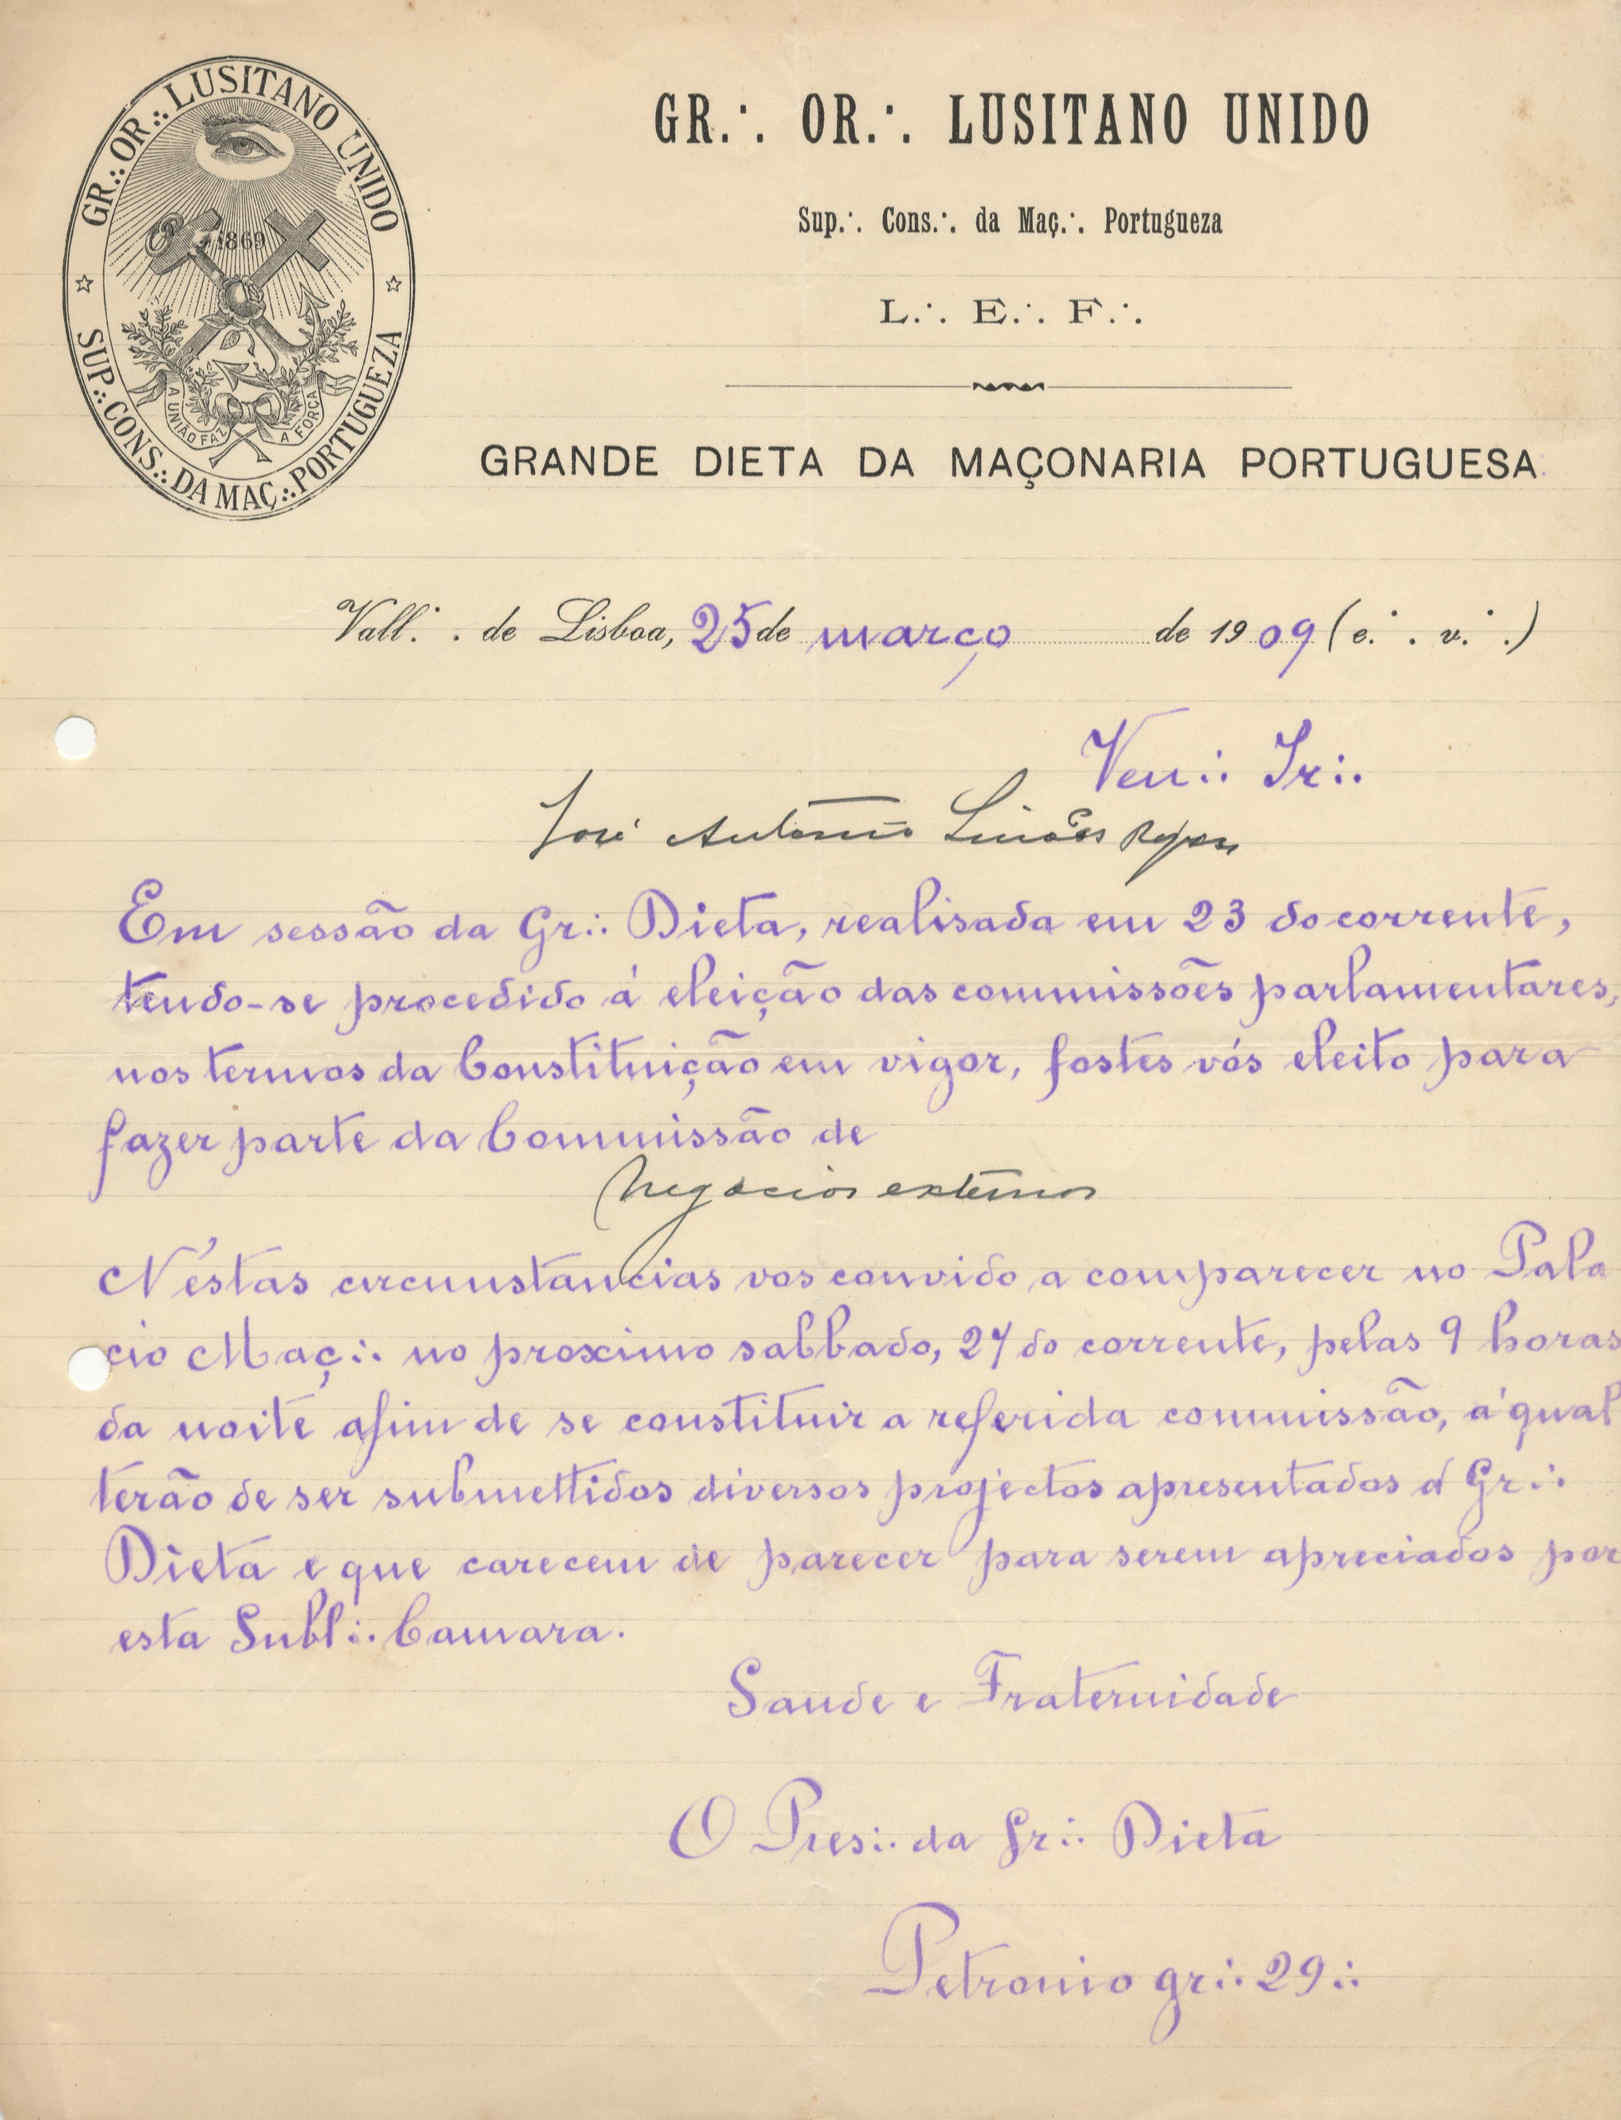 GR.·. OR.·. LUSITANO UNIDO
SUP.·. CONS.·. DA MAÇ.·. PORTUGUEZA
1869
A UNIÃO FAZ A FORÇA
GR.·. OR.·. LUSITANO UNIDO
Sup.·. Cons.·. da Maç.·. Portugueza
L.·. E.·. F.·.
GRANDE DIETA DA MAÇONARIA PORTUGUESA
Vall.·. de Lisboa, 25 de março de 1909 (e.·. v.·.)
Ven.·. Ir.·.
José Antonio Simões
Em sessão da Gr.·. Dieta, realisada em 23 do corrente,
tendo-se procedido á eleição das commissões parlamentares,
nos termos da Constituição em vigor, fostes vós eleito para
fazer parte da Commissão de
Negocios externos
N'éstas circunstancias vos convido a comparecer no Pala
cio Maç.·. no proximo sabbado, 27 do corrente, pelas 9 horas
da noite afim de se constituir a referida commissão, á qual
terão de ser submettidos diversos projectos apresentados á Gr.·.
Dieta e que carecem de parecer para serem apreciados por
esta Subl.·. Camara.
Saude e Fraternidade
O Pres.·. da Gr.·. Dieta
Petronio gr.·. 29.·.